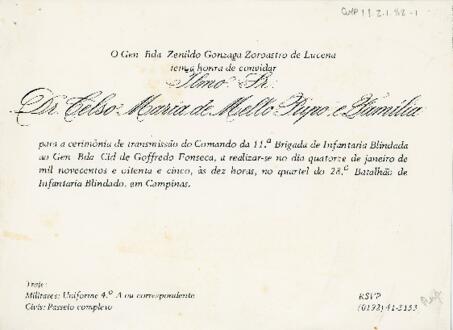 CMP 11.2.1.82-1
O Gen Bda Zenildo Gonzaga Zoroastro de Lucena
tem a honra de convidar
Ilmo. Sr.
Dr. Celso Maria de Mello Pupo e Família
para a cerimônia de transmissão do Comando da 11.ª Brigada de Infantaria Blindada
ao Gen Bda Cid de Goffredo Fonseca, a realizar-se no dia quatorze de janeiro de
mil novecentos e oitenta e cinco, às dez horas, no quartel do 28.º Batalhão de
Infantaria Blindado, em Campinas.
Traje:
Militares: Uniforme 4.º A ou correspondente
Civis: Passeio completo
RSVP
(0192) 41-2153